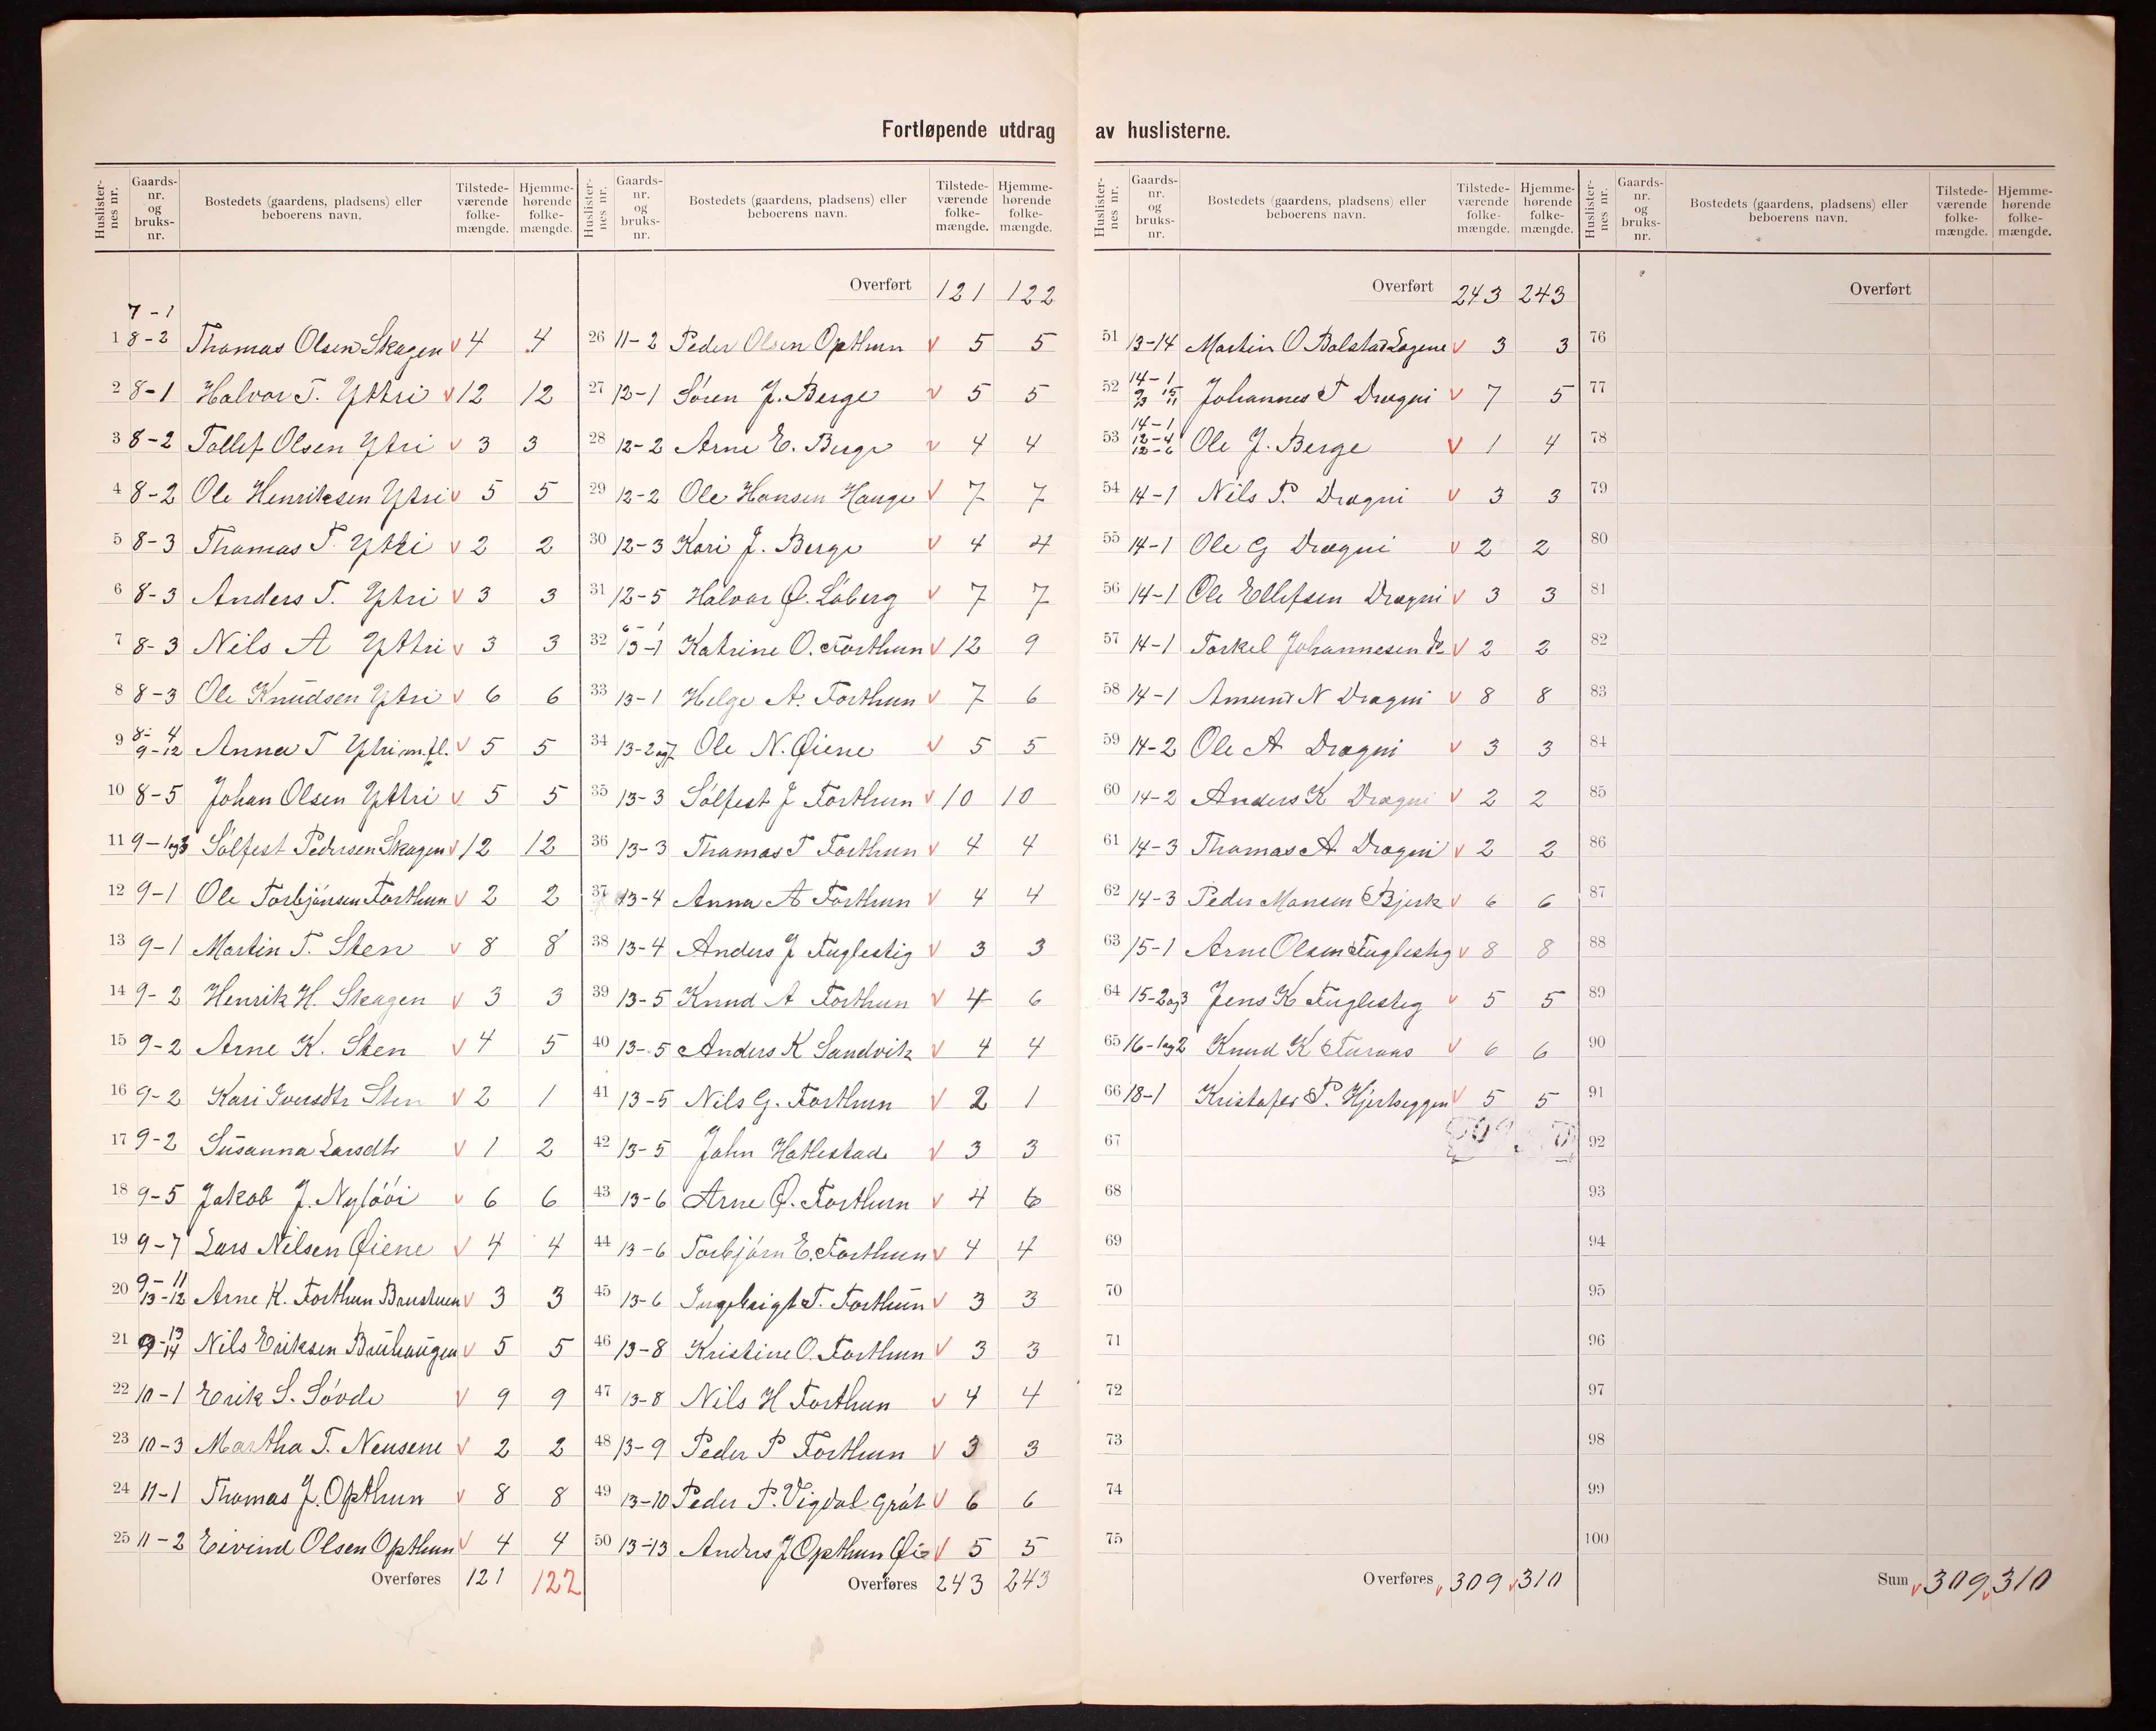 Fortløpende utdrag av huslisterne.
Huslister-nes nr. Gaards-nr. og bruks-nr. Bostedets (gaardens, pladsens) eller beboerens navn. Tilstede-værende folke-mængde. Hjemme-hørende folke-mængde.
7-1
1 8-2 Thomas Olsen Skagen v 4 4
2 8-1 Halvor T. Yttri v 12 12
3 8-2 Tollef Olsen Ytri v 3 3
4 8-2 Ole Henriksen Ytri v 5 5
5 8-3 Thomas T. Yttri v 2 2
6 8-3 Anders T. Yttri v 3 3
7 8-3 Nils A Yttri v 3 3
8 8-3 Ole Knudsen Yttri v 6 6
9 8-4 9-12 Anna T Ytri m.fl. v 5 5
10 8-5 Johan Olsen Yttri v 5 5
11 9-1og3 Sølfest Pedersen Skagen v 12 12
12 9-1 Ole Torbjønsen Forthun v 2 2
13 9-1 Martin T. Sten v 8 8
14 9-2 Henrik H. Skagen v 3 3
15 9-2 Arne K. Sten v 4 5
16 9-2 Kari Iversdtr Sten v 2 1
17 9-2 Susanna Larsdtr v 1 2
18 9-5 Jakob J. Nyløöi v 6 6
19 9-7 Lars Nilsen Øiene v 4 4
20 9-11 13-12 Arne K. Forthun Brustuen v 3 3
21 9-13 14 Nils Eriksen Bruhaugen v 5 5
22 10-1 Erik S. Søvde v 9 9
23 10-3 Martha T. Neusene v 2 2
24 11-1 Thomas J. Opthun v 8 8
25 11-2 Eivind Olsen Opthun v 4 4
Overføres 121 122
Huslister-nes nr. Gaards-nr. og bruks-nr. Bostedets (gaardens, pladsens) eller beboerens navn. Tilstede-værende folke-mængde. Hjemme-hørende folke-mængde.
Overført 121 122
26 11-2 Peder Olsen Opthun v 5 5
27 12-1 Søren J. Berge v 5 5
28 12-2 Arne E. Berge v 4 4
29 12-2 Ole Hansen Hauge v 7 7
30 12-3 Kari J. Berge v 4 4
31 12-5 Halvor Ø. Løberg v 7 7
32 6-1 13-1 Katrine O. Forthun v 12 9
33 13-1 Helge A. Forthun v 7 6
34 13-2og7 Ole N. Øiene v 5 5
35 13-3 Sølfest J Forthun v 10 10
36 13-3 Thomas T Forthun v 4 4
37 13-4 Anna A Forthun v 4 4
38 13-4 Anders J Fuglestig v 3 3
39 13-5 Knud A Forthun v 4 6
40 13-5 Anders K Sandvik v 4 4
41 13-5 Nils G. Forthun v 2 1
42 13-5 John Hatlestad v 3 3
43 13-6 Arne Ø. Forthun v 4 6
44 13-6 Torbjørn E. Forthun v 4 4
45 13-6 Ingebrigt T. Forthun v 3 3
46 13-8 Kristine O. Forthun v 3 3
47 13-8 Nils H Forthun v 4 4
48 13-9 Peder P Forthun v 3 3
49 13-10 Peder P. Vigdal v 6 6
50 13-13 Anders J Opthun Øi v 5 5
Overføres 243 243
Huslister-nes nr. Gaards-nr. og bruks-nr. Bostedets (gaardens, pladsens) eller beboerens navn. Tilstede-værende folke-mængde. Hjemme-hørende folke-mængde.
Overført 243 243
51 13-14 Martin O Bolstad v 3 3
52 14-1 Johannes T Drægni v 7 5
53 14-1 12-4 12-6 Ole J. Berge v 1 4
54 14-1 Nils P. Drægni v 3 3
55 14-1 Ole G Drægni v 2 2
56 14-1 Ole Ellefsen Drægni v 3 3
57 14-1 Torkel Johannesen Do v 2 2
58 14-1 Amund N Drægni v 8 8
59 14-2 Ole A Drægni v 3 3
60 14-2 Anders K Drægni v 2 2
61 14-3 Thomas A Drægni v 2 2
62 14-3 Peder Monsen Bjerk v 6 6
63 15-1 Arne Olsen Fuglestig v 8 8
64 15-2og3 Jens K Fuglesteg v 5 5
65 16-1og2 Knud K Turaas v 6 6
66 18-1 Kristofer P. Hjerseggen v 5 5
67
68
69
70
71
72
73
74
75
Overføres v 309 v 310
Huslister-nes nr. Gaards-nr. og bruks-nr. Bostedets (gaardens, pladsens) eller beboerens navn. Tilstede-værende folke-mængde. Hjemme-hørende folke-mængde.
Overført
76
77
78
79
80
81
82
83
84
85
86
87
88
89
90
91
92
93
94
95
96
97
98
99
100
Sum v 309 v 310